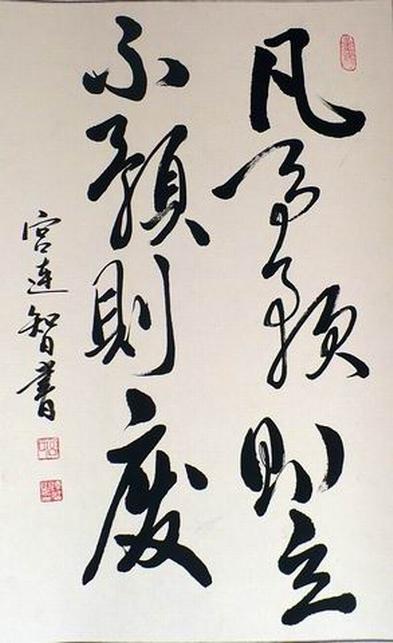 凡事預則立
不預則廢
宮連智書